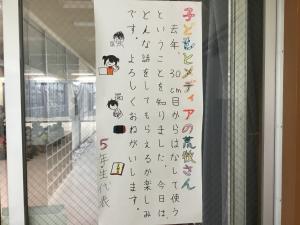 子どもとメディアの荒牧さん
去年、30cm目からはなして使う
ということを知りました。今日は
どんな話をしてもらえるか楽しみ
です。よろしくおねがいします。
5年生代表